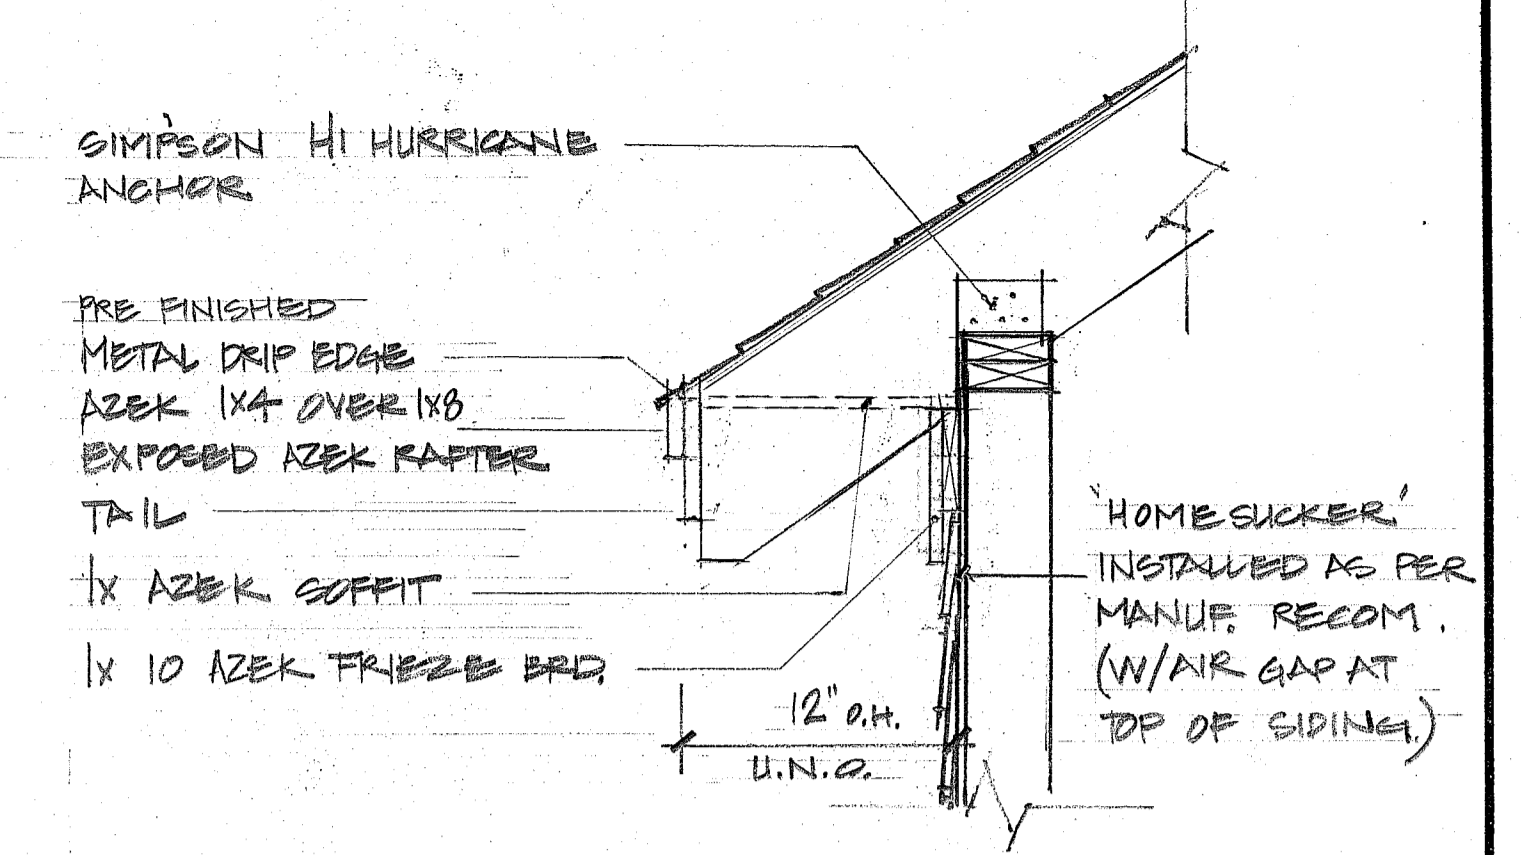 SIMPSON H1 HURRICANE
ANCHOR
PRE FINISHED
METAL DRIP EDGE
AZEK 1X4 OVER 1X8
EXPOSED AZEK RAFTER
TAIL
1X AZEK SOFFIT
1X 10 AZEK FRIEZE BRD.
12" O.H.
U.N.O.
'HOMESLICKER'
INSTALLED AS PER
MANUF. RECOM.
(W/AIR GAP AT
TOP OF SIDING.)